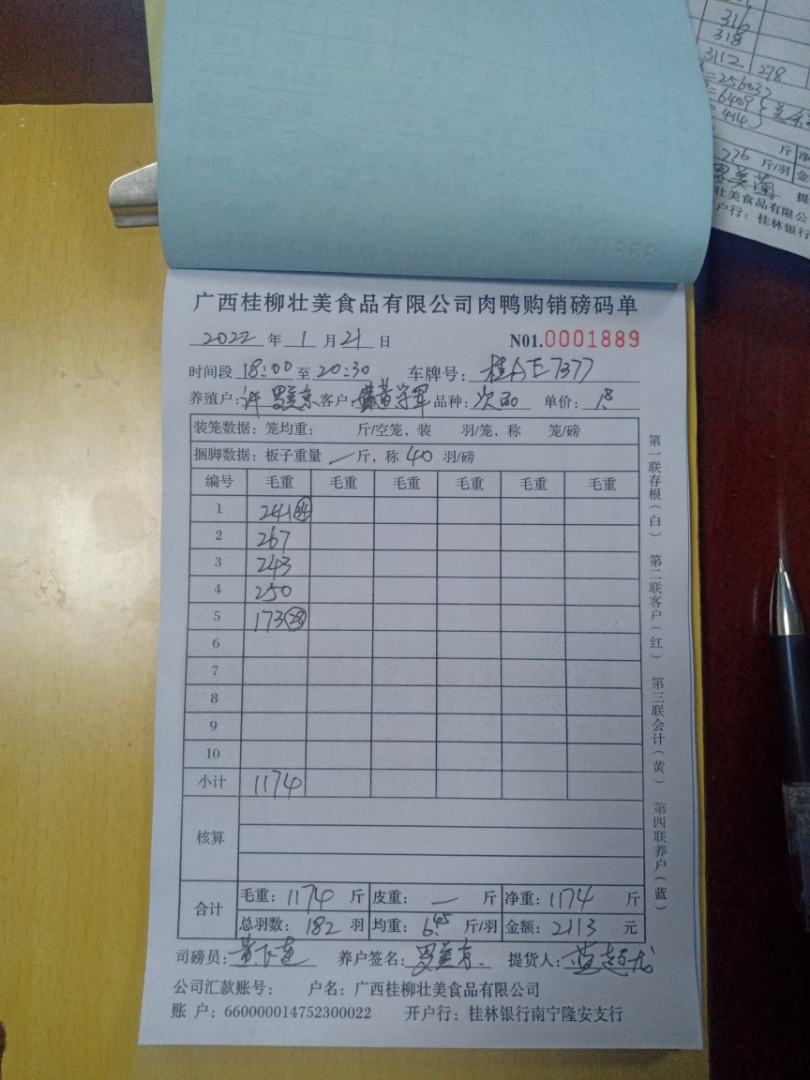 316
318
3112 278
=25603
=6409
=4414
斤 净
276 斤/羽 金
提
壮美食品有限公
户行：桂林银行
广西桂柳壮美食品有限公司肉鸭购销磅码单
2022 年 1 月 21 日 N01.0001889
时间段 18:00 至 20:30 车牌号：桂AE7377
养殖户：许 客户： 品种：次品 单价：1.8
装笼数据：笼均重： 斤/空笼，装 羽/笼，称 笼/磅
捆脚数据：板子重量 — 斤，称 40 羽/磅
编号 毛重 毛重 毛重 毛重 毛重 毛重
1 241
2 267
3 243
4 250
5 173 28
6
7
8
9
10
小计 1174
核算
合计 毛重：1174 斤 皮重：— 斤 净重：1174 斤
总羽数：182 羽 均重：6.45 斤/羽 金额：2113 元
司磅员： 养户签名： 提货人：
公司汇款账号： 户名：广西桂柳壮美食品有限公司
账 户：660000014752300022 开户行：桂林银行南宁隆安支行
第一联存根（白） 第二联客户（红） 第三联会计（黄） 第四联养户（蓝）